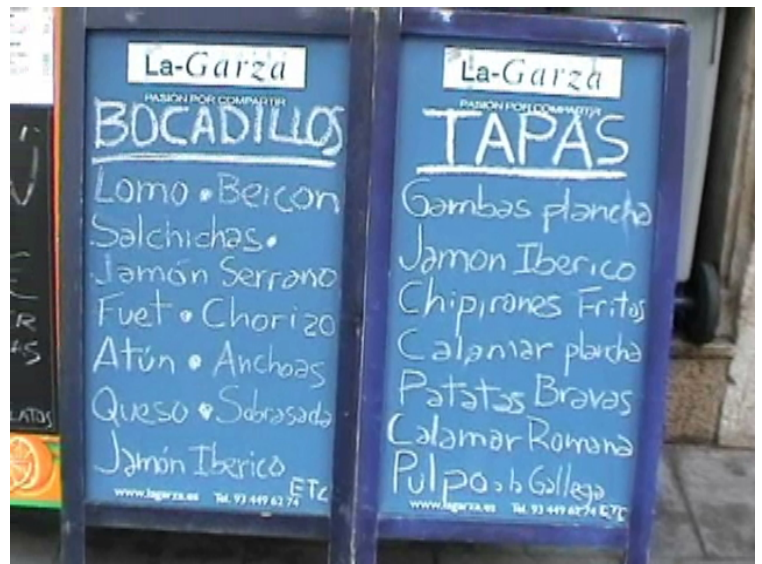 La-Garza
PASIÓN POR COMPARTIR
BOCADILLOS
Lomo • Beicon
Salchichas •
Jamón Serrano
Fuet • Chorizo
Atún • Anchoas
Queso • Sobrasada
Jamón Iberico
ETC
www.lagarza.es Tel. 93 449 62 74
La-Garza
PASIÓN POR COMPARTIR
TAPAS
Gambas plancha
Jamon Iberico
Chipirones Fritos
Calamar plancha
Patatas Bravas
Calamar Romana
Pulpo a la Gallega
www.lagarza.es Tel. 93 449 62 74 ETC